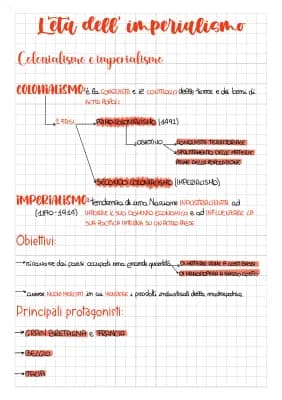 L'età dell'imperialismo
Colonialismo e imperialismo
COLONIALISMO: è la CONQUISTA e il CONTROLLO delle terre e dei beni di
ALTRI POPOLI
2 FASI
PRIMO COLONIALISMO (1492)
OBIETTIVO
CONQUISTA TERRITORIALE
SFRUTTAMENTO DELLE MATERIE
PRIME DELLE POPOLAZIONI
SECONDO COLONIALISMO (IMPERIALISMO)
IMPERIALISMO: tendenza di una Nazione INDUSTRIALIZZATA ad
(1870-1914) IMPORRE IL SUO DOMINIO ECONOMICO e ad INFLUENZARE LA
SUA POLITICA INTERNA SU UN ALTRO PAESE
Obiettivi:
ricavare dai paesi occupati una grande quantità
DI MATERIE PRIME A COSTI BASSI
DI MANODOPERA A BASSO COSTO
avere NUOVI MERCATI in cui VENDERE i prodotti industriali della madrepatria
Principali protagonisti:
GRAN BRETAGNA e FRANCIA
BELGIO
ITALIA